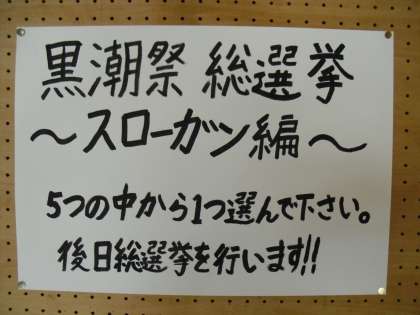 黒潮祭 総選挙
～スローガン編～
5つの中から1つ選んで下さい。
後日総選挙を行います!!